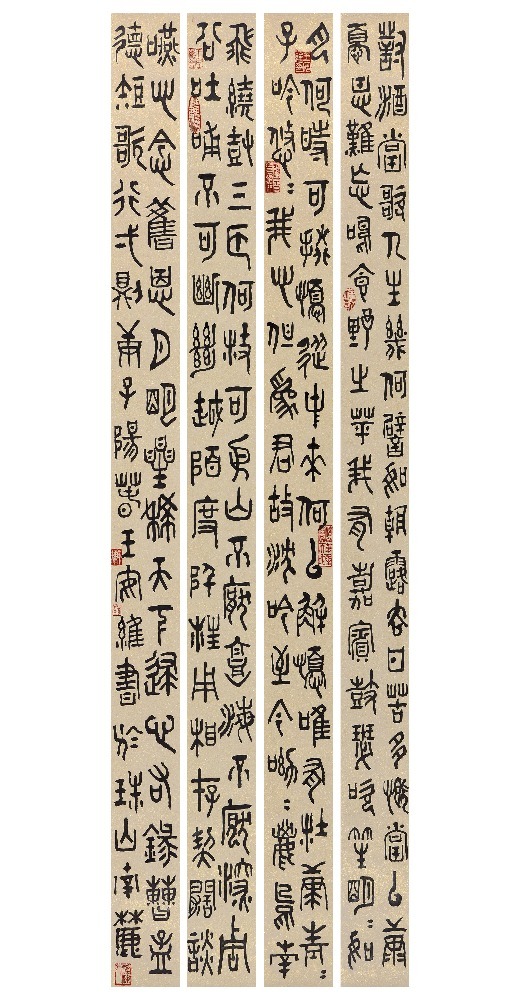 對酒當歌人生幾何譬如朝露去日苦多慨當以康
憂思難忘鳴食野之苹我有嘉賓鼓瑟吹笙明々如
月何時可掇憂從中來何以解憂唯有杜康青々
子衿悠々我心但為君故沈吟至今呦々鹿烏南
飛繞樹三匝何枝可依山不厭高海不厭深周
公吐哺不可斷絕越陌度阡枉用相存契闊談
讌心念舊恩月明星稀天下歸心右錄曹孟
德短歌行弍則庚子陽春王安維書於珠山南麓